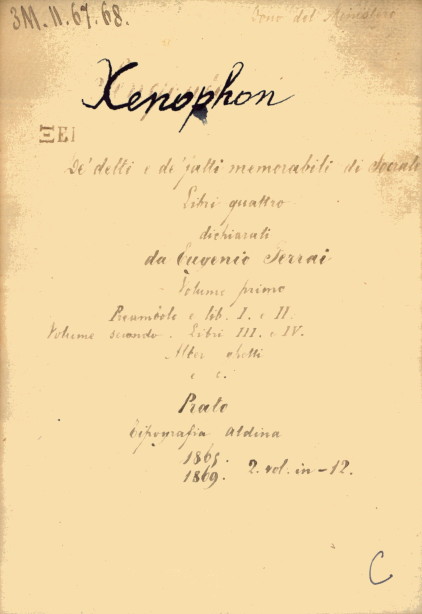 3M. 11. 67. 68.
Dono del Ministero
Xenophon
ΞΕΙ
De' detti e de' fatti memorabili di Socrate
Libri quattro
dichiarati
da Eugenio Ferrai
Volume primo
Preambolo e lib. I. e II.
Volume secondo. Libri III. e IV.
Alber
Prato
Tipografia Aldina
1865.
1869. 2. vol. in-12.
C